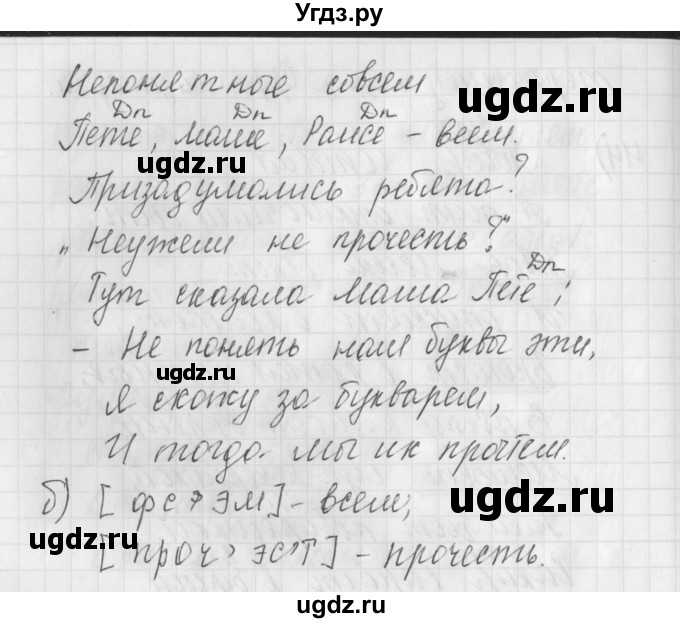 Угдз.ру
Непонятные совсем
ugdz.ru
Дп Дп Дп
Пете, Маше, Раисе - всем.
Призадумались ребята?
„Неужели не прочесть?"
Дп
Тут сказала Маша Пете:
- Не понять нам буквы эти,
ugdz.ru
Я схожу за букварем,
И тогда мы их прочтем.
б) [фс’эм] - всем,
ugdz.ru
ugdz.ru
[проч’эс’т’] - прочесть.
ugdz.ru